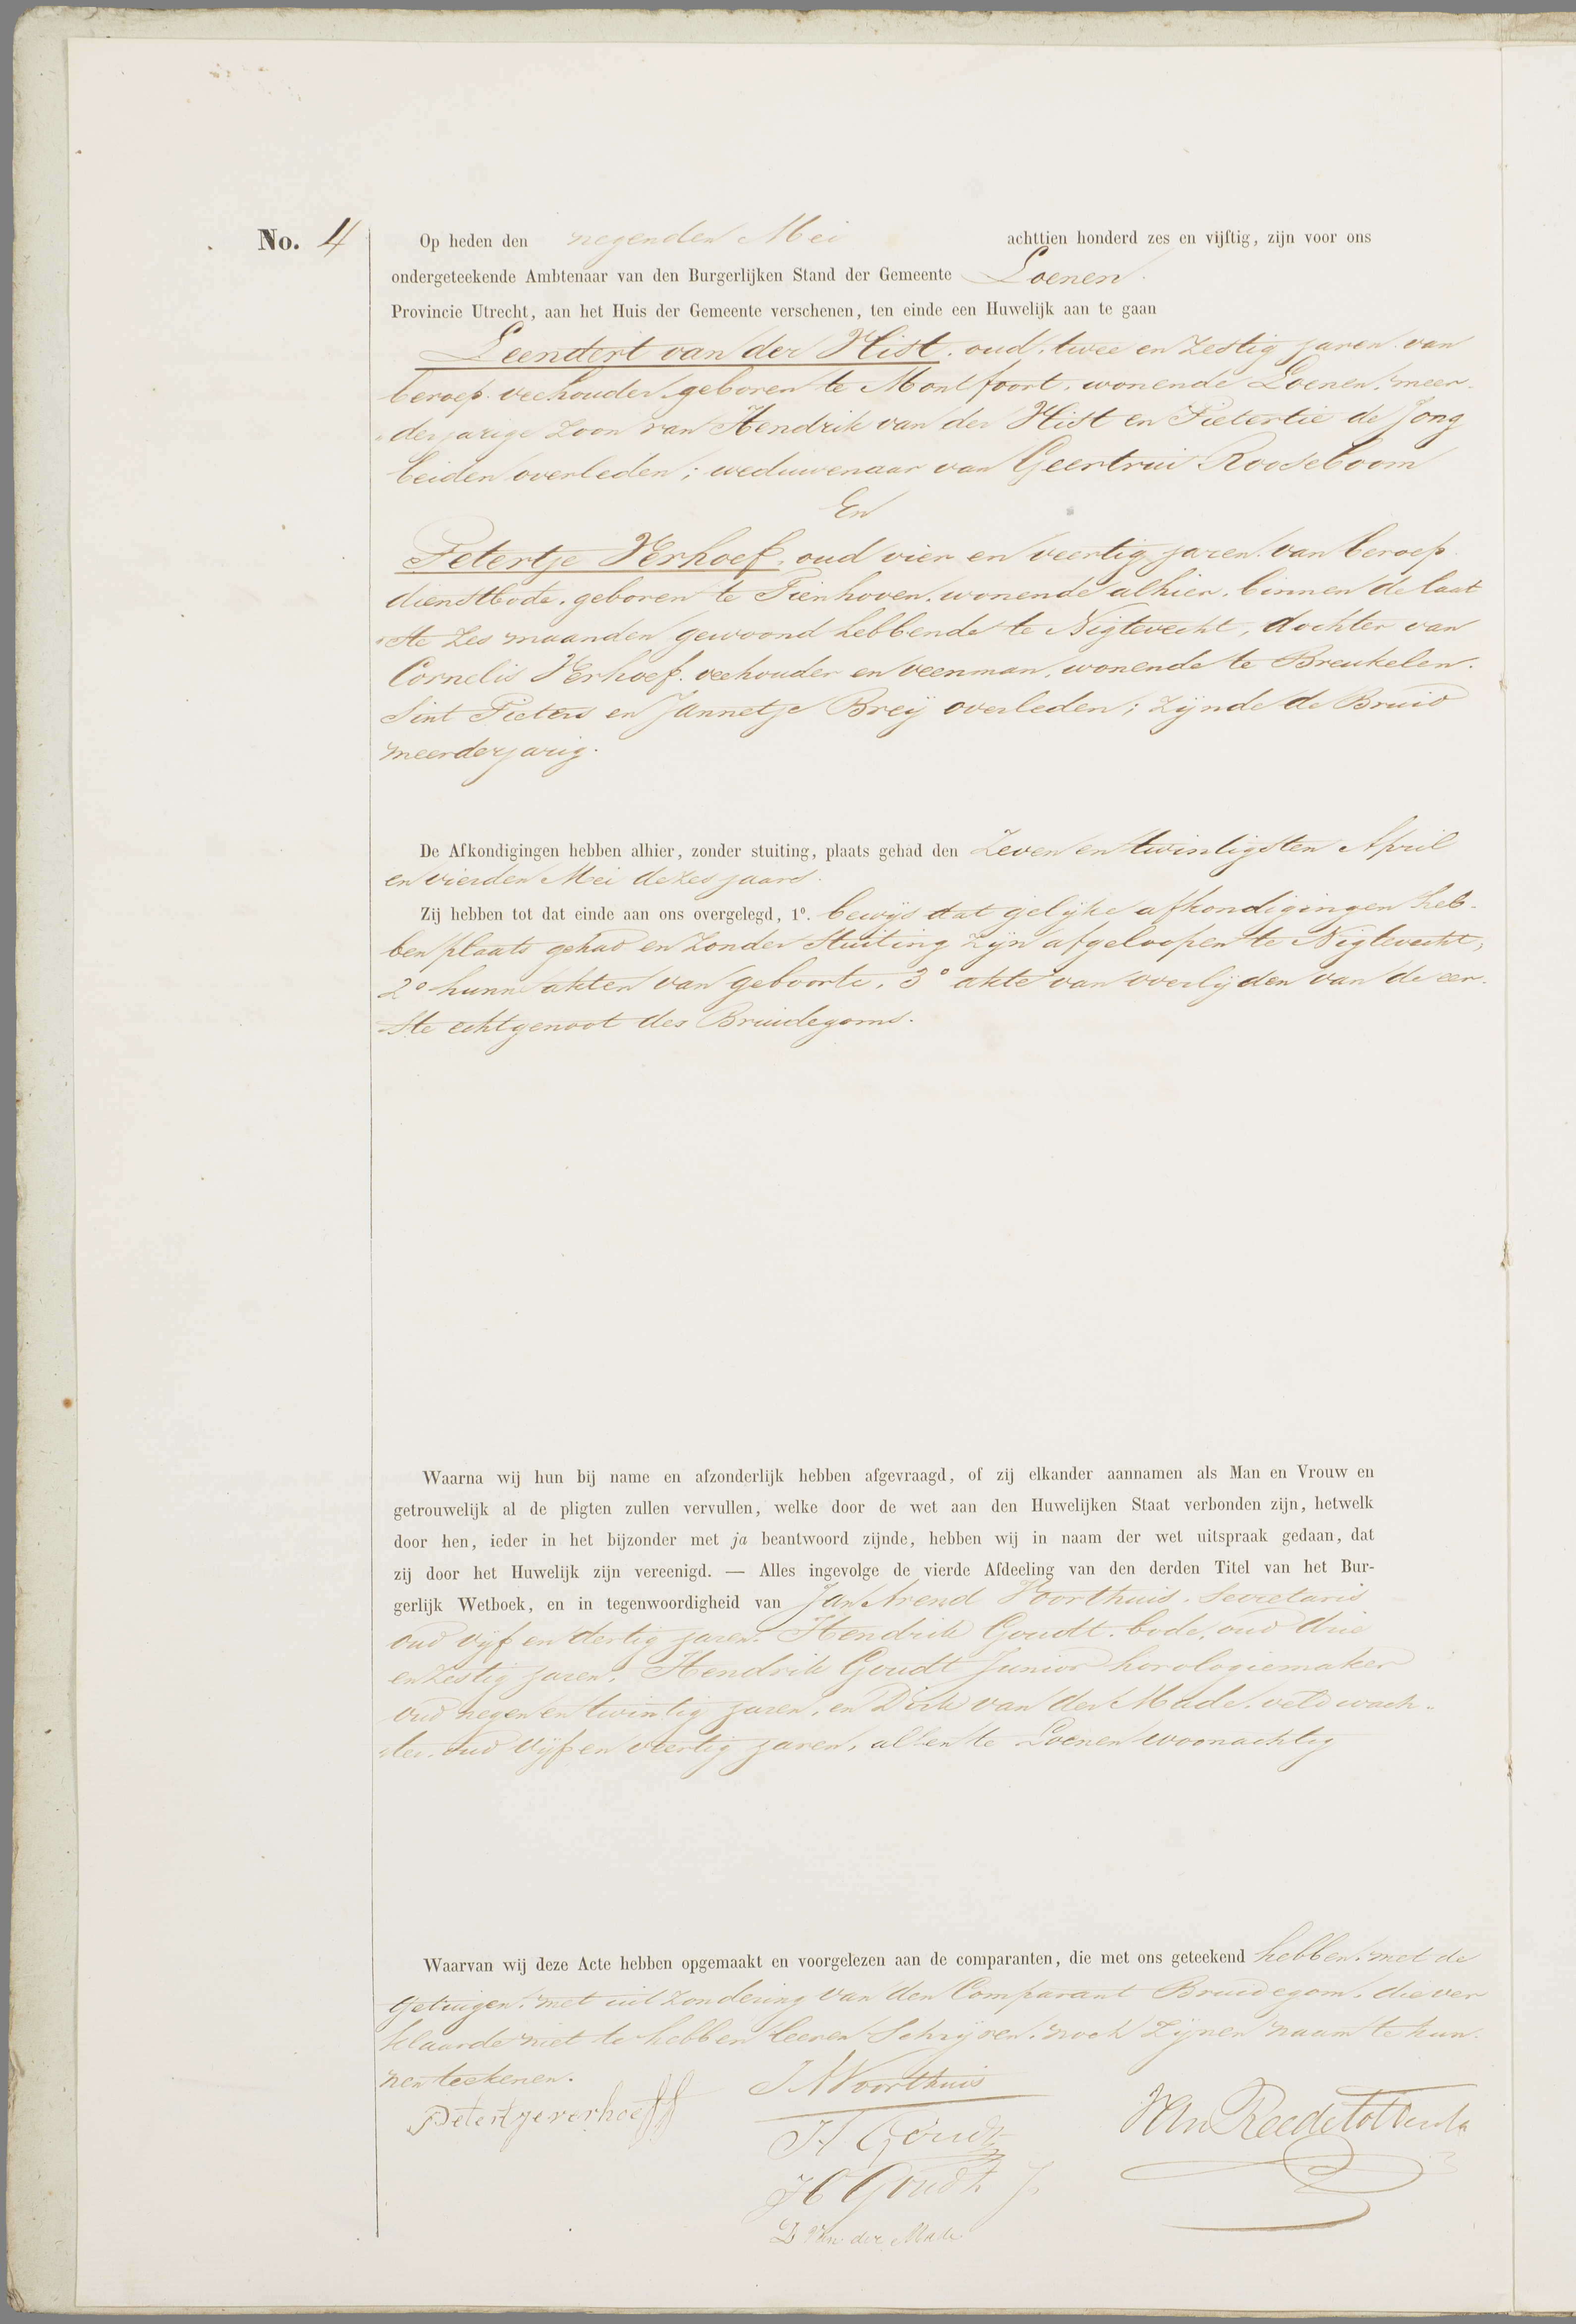 No. 4
Op heden den negenden Mei achttien honderd zes en vijftig, zijn voor ons
ondergeteekende Ambtenaar van den Burgerlijken Stand der Gemeente Loenen
Provincie Utrecht, aan het Huis der Gemeente verschenen, ten einde een Huwelijk aan te gaan
Leendert van der Hist, oud, twee en zestig jaren, van
beroep veehouder, geboren te Montfoort, wonende Loenen, meer-
derjarige zoon van Hendrik van der Hist en Pietertie de Jong
beiden overleden; weduwenaar van Geertrui Rooseboom
En
Petertje Verhoef, oud vier en veertig jaren van beroep
dienstbode, geboren te Tienhoven, wonende alhier, binnen de laat
ste zes maanden gewoond hebbende te Nigtevecht, dochter van
Cornelis Verhoef, veehouder en veenman, wonende te Breukelen.
Sint Pieters en Jannetje Breij overleden; zijnde de Bruid
meerderjarig.
De Afkondigingen hebben alhier, zonder stuiting, plaats gehad den Zeven en twintigsten April
en vierden Mei dezes jaars.
Zij hebben tot dat einde aan ons overgelegd, 1º. bewijs dat gelijke afkondigingen heb-
ben plaats gehad en zonder stuiting zijn afgeloopen te Nigtevecht,
2º hunne akten van geboorte, 3º akte van overlijden van de eer-
ste echtgenoot des Bruidegoms.
Waarna wij hun bij name en afzonderlijk hebben afgevraagd, of zij elkander aannamen als Man en Vrouw en
getrouwelijk al de pligten zullen vervullen, welke door de wet aan den Huwelijken Staat verbonden zijn, hetwelk
door hen, ieder in het bijzonder met ja beantwoord zijnde, hebben wij in naam der wet uitspraak gedaan, dat
zij door het Huwelijk zijn vereenigd. — Alles ingevolge de vierde Afdeeling van den derden Titel van het Bur-
gerlijk Wetboek, en in tegenwoordigheid van Jan Arend Voorthuis, Secretaris
oud vijf en dertig jaren. Hendrik Goudt, bode, oud drie
en zestig jaren, Hendrik Goudt Junior horologiemaker
oud negen en twintig jaren, en Dirk van der Made, veldwach-
ter, oud vijf en veertig jaren, allen te Loenen woonachtig
Waarvan wij deze Acte hebben opgemaakt en voorgelezen aan de comparanten, die met ons geteekend hebben, met de
getuigen, met uitzondering van den Comparant Bruidegom, die ver
klaarde niet te hebben leeren schrijven, noch zijnen naam te kun-
nen teekenen.
Petertje verhoeff
J A Voorthuis
H Goudt
H Goudt Jr
D van der Made
Van Reede tot